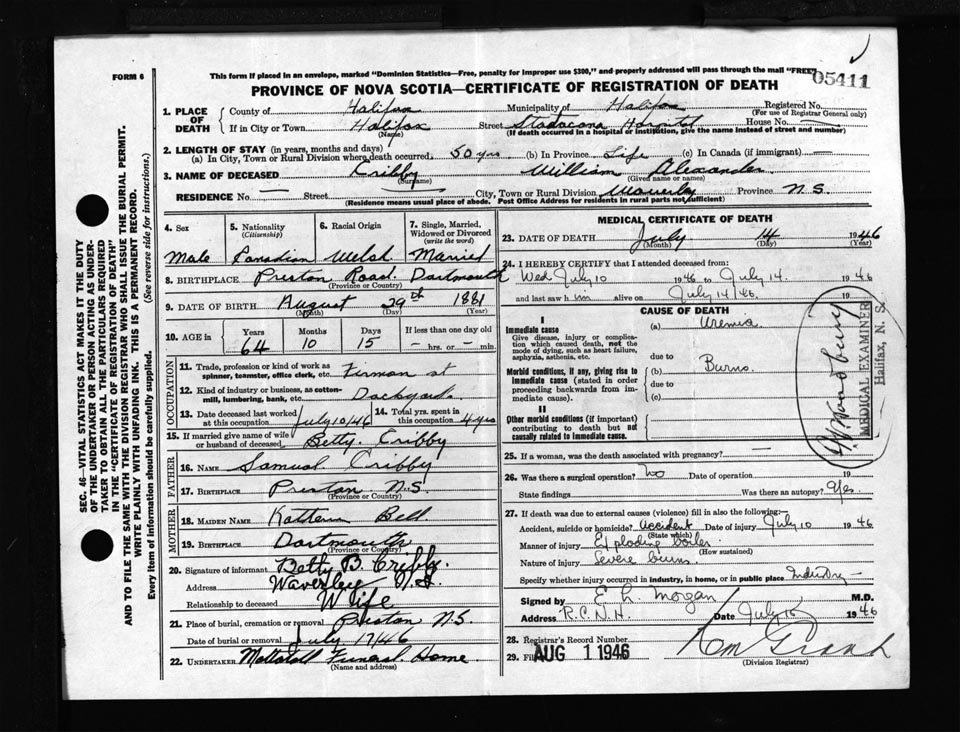 FORM 6
This form if placed in an envelope, marked "Dominion Statistics—Free, penalty for improper use $300," and properly addressed will pass through the mail "FREE"
05411
PROVINCE OF NOVA SCOTIA—CERTIFICATE OF REGISTRATION OF DEATH
1. PLACE OF DEATH
County of Halifax Municipality of Halifax Registered No.
(For use of Registrar General only)
If in City or Town Halifax Street Stadacona Hospital House No. —
(Name) (If death occurred in a hospital or institution, give the name instead of street and number)
2. LENGTH OF STAY (in years, months and days)
(a) In City, Town or Rural Division where death occurred 50 yrs (b) In Province Life (c) In Canada (if immigrant) —
3. NAME OF DECEASED Cribby William Alexander
(Surname) (Given name or names)
RESIDENCE No. — Street — City, Town or Rural Division Waverley Province N.S.
(Residence means usual place of abode. Post Office Address for residents in rural parts not sufficient)
4. Sex 5. Nationality (Citizenship) 6. Racial Origin 7. Single, Married, Widowed or Divorced (write the word)
Male Canadian Welsh Married
8. BIRTHPLACE Preston Road, Dartmouth
(Province or Country)
9. DATE OF BIRTH August 29th 1881
(Month) (Day) (Year)
10. AGE in Years Months Days If less than one day old
64 10 15 — hrs. or — min.
OCCUPATION
11. Trade, profession or kind of work as spinner, teamster, office clerk, etc. Firman at
12. Kind of industry or business, as cotton-mill, lumbering, bank, etc. Dockyard.
13. Date deceased last worked at this occupation July 10/46
14. Total yrs. spent in this occupation 4 yrs
15. If married give name of wife or husband of deceased Betty. Cribby
FATHER
16. NAME Samual Cribby
17. BIRTHPLACE Preston N.S.
(Province or Country)
MOTHER
18. MAIDEN NAME Bell
19. BIRTHPLACE Dartmouth
(Province or Country)
20. Signature of informant Betty B. Cribby.
Address Waverley N.S.
Relationship to deceased Wife
21. Place of burial, cremation or removal Preston N.S.
Date of burial or removal July 17/46
22. UNDERTAKER Funeral Home
(Name and address)
MEDICAL CERTIFICATE OF DEATH
23. DATE OF DEATH July 14 1946
(Month) (Day) (Year)
24. I HEREBY CERTIFY that I attended deceased from:
Wed July 10 1946 to July 14. 1946
and last saw h im alive on July 14/46. 19
CAUSE OF DEATH
I
Immediate cause
Give disease, injury or complication which caused death, not the mode of dying, such as heart failure, asphyxia, asthenia, etc.
(a) Uremia
due to
Morbid conditions, if any, giving rise to immediate cause (stated in order proceeding backwards from immediate cause).
(b) Burns.
due to
(c)
II
Other morbid conditions (if important) contributing to death but not causally related to immediate cause.
MEDICAL EXAMINER
Halifax, N. S.
25. If a woman, was the death associated with pregnancy? —
26. Was there a surgical operation? No Date of operation 19
State findings Was there an autopsy? Yes.
27. If death was due to external causes (violence) fill in also the following:
Accident, suicide or homicide? Accident Date of injury July 10 1946
(State which)
Manner of injury Exploding boiler
(How sustained)
Nature of injury Severe burns.
Specify whether injury occurred in industry, in home, or in public place Industry
Signed by E. L. Morgan M.D.
Address R.C.N.H. Date July 15 1946
28. Registrar's Record Number
29. Filed AUG 1 1946
(Division Registrar)
SEC. 46—VITAL STATISTICS ACT MAKES IT THE DUTY
OF THE UNDERTAKER OR PERSON ACTING AS UNDER-
TAKER TO OBTAIN ALL THE PARTICULARS REQUIRED
IN THE "CERTIFICATE OF REGISTRATION OF DEATH"
AND TO FILE THE SAME WITH THE DIVISION REGISTRAR WHO SHALL ISSUE THE BURIAL PERMIT.
WRITE PLAINLY WITH UNFADING INK. THIS IS A PERMANENT RECORD.
Every item of information should be carefully supplied. (See reverse side for instructions.)